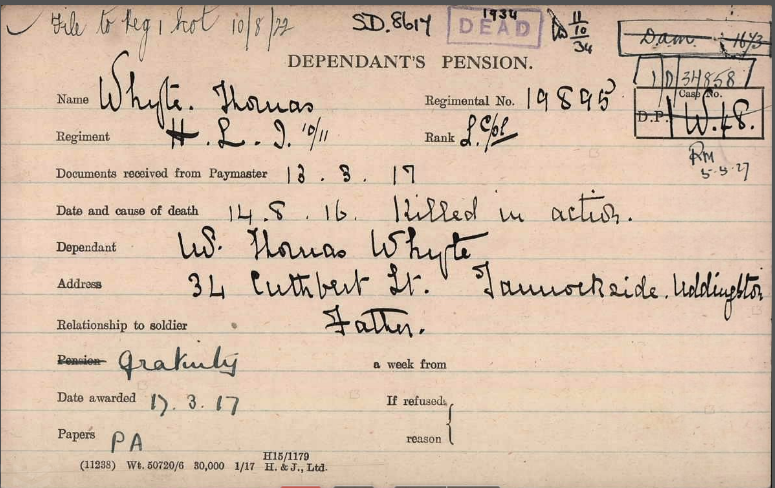 File to Reg 1 Not 10/8/22 SD.8617 1934 DEAD 11/10/34
Dam. 1673
DEPENDANT'S PENSION.
1 D 34858
Case No.
Name Whyte. Thomas Regimental No. 19895
D.P. W.48.
Regiment H. L. I. 10/11 Rank L.Cpl
RM 5-5-27
Documents received from Paymaster 13. 3. 17
Date and cause of death 14.8.16. Killed in action.
Dependant W. Thomas Whyte
Address 34 Cuthbert St. Tannockside. Uddingston
Relationship to soldier Father.
Pension gratuity a week from
Date awarded 17.3.17 If refused,
Papers PA reason
H15/1179
(11238) Wt. 50720/6 30,000 1/17 H. & J., Ltd.